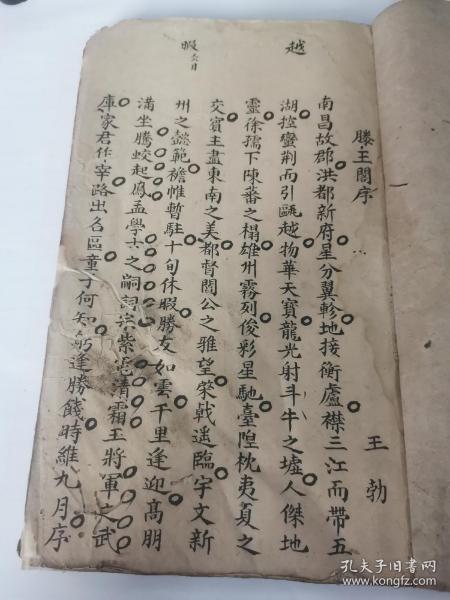 越
暇
滕王閣序
王勃
南昌故郡洪都新府星分翼軫地接衡盧襟三江而帶五
湖控蠻荊而引甌越物華天寶龍光射斗牛之墟人傑地
靈徐孺下陳蕃之榻雄州霧列俊彩星馳臺隍枕夷夏之
交賓主盡東南之美都督閻公之雅望棨戟遙臨宇文新
州之懿範襜帷暫駐十旬休暇勝友如雲千里逢迎高朋
滿坐騰蛟起鳳孟學士之嗣詞宗紫清霜王將軍之武
庫家君作宰路出名區童子何知躬逢勝餞時維九月序
孔夫子旧书网
www.kongfz.com